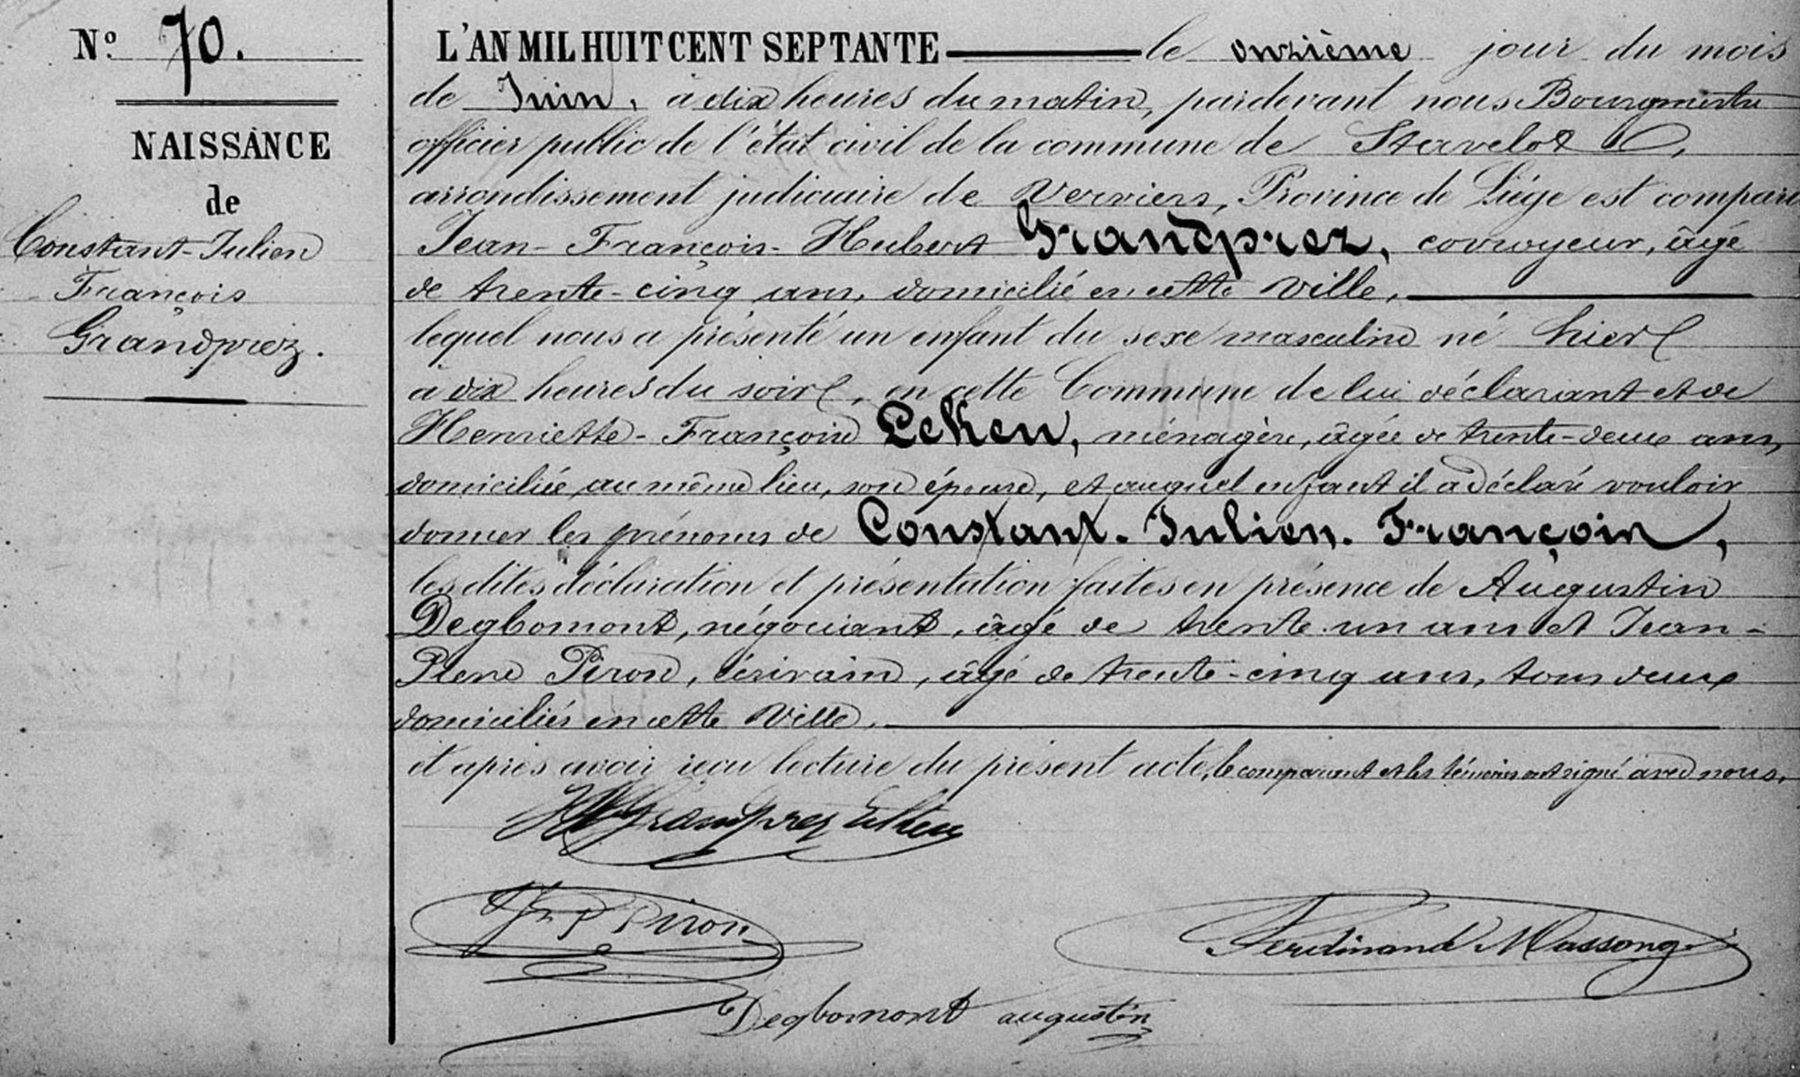 N° 70.
NAISSANCE
de
Constant-Julien
François
Grandprez.
L'AN MIL HUIT CENT SEPTANTE le onzième jour du mois
de Juin, à dix heures du matin, pardevant nous Bourgmestre
officier public de l'état civil de la commune de Stavelot,
arrondissement judiciaire de Verviers, Province de Liége est comparu
Jean-François-Hubert Grandprez, corroyeur, âgé
de trente-cinq ans, domicilié en cette ville,
lequel nous a présenté un enfant du sexe masculin né hier
à dix heures du soir, en cette Commune de lui déclarant et de
Henriette-Françoise Lekeu, ménagère, âgée de trente-deux ans,
domiciliée au même lieu, son épouse, et auquel enfant il a déclaré vouloir
donner les prénoms de Constant-Julien-François,
les dites déclaration et présentation faites en présence de Augustin
Degbomont, négociant, âgé de trente un ans et Jean-
Pierre Piron, écrivain, âgé de trente-cinq ans, tous deux
domiciliés en cette Ville.
et après avoir reçu lecture du présent acte, le comparant et les témoins ont signé avec nous.
Grandprez Lekeu
Jn P Piron
Ferdinand Massange
Degbomont augustin